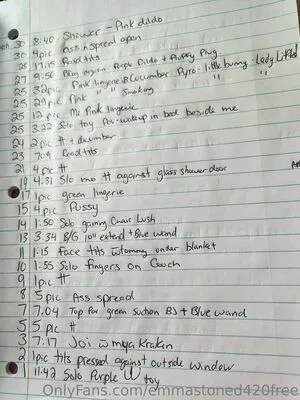 Feb. 30 8:46 Shower - Pink dildo
30 4pic ass n spread open
26 17:15 Road tits
27 9:56 Big orgasm Purple Dildo + Pump Plug
25 32pic Pink lingerie & Cucumber Pyro: little bunny - Lady
25 29pic Pink " " Smoking " "
25 12 pic Me Pink lingerie
25 3:22 Solo toy Pov - wakeup in bed beside me
24 2 pic tt + cucumber
23 7:09 Road tits
21 4 pic tt
19 4:31 Slo mo tt against glass shower door
17 1pic green lingerie
15 4pic Pussy
14 1:50 Solo gaming Chair Lush
13 3:34 B/G 10" extend + Blue wand
11 1:15 Face tits w tommy under blanket
10 1:55 Solo fingers on Couch
9 1pic tt
8 5 pic Ass spread
7 7:04 Top for green suction BJ + Blue wand
5 5 pic tt
3 7:17 Joi w mya Kraken
2 1pic tits pressed against outside window
1 11:42 Solo Purple U toy
OnlyFans.com/emmastoned420free